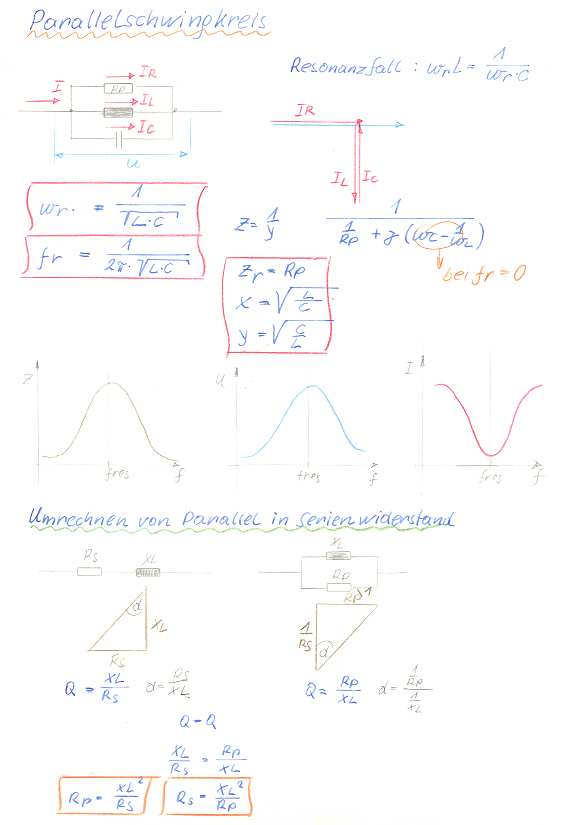 Parallelschwingkreis
Resonanzfall : ωrL = 1/(ωr·C)
I
IR
RP
IL
IC
u
IR
IL
IC
ωr. = 1/√(L·C)
fr = 1/(2π·√(L·C))
Z = 1/y
1/(1/RP + j(ωC - 1/ωL))
bei fr = 0
Zr = RP
X = √(L/C)
y = √(C/L)
Z
fres
f
U
fres
f
I
fres
f
Umrechnen von Parallel in Serienwiderstand
RS
XL
d
XL
RS
XL
RP
1
RP
1/RS
d
Q = XL/RS
d = RS/XL
Q = RP/XL
d = (1/RP)/(1/XL)
Q = Q
XL/RS = RP/XL
RP = XL²/RS
RS = XL²/RP